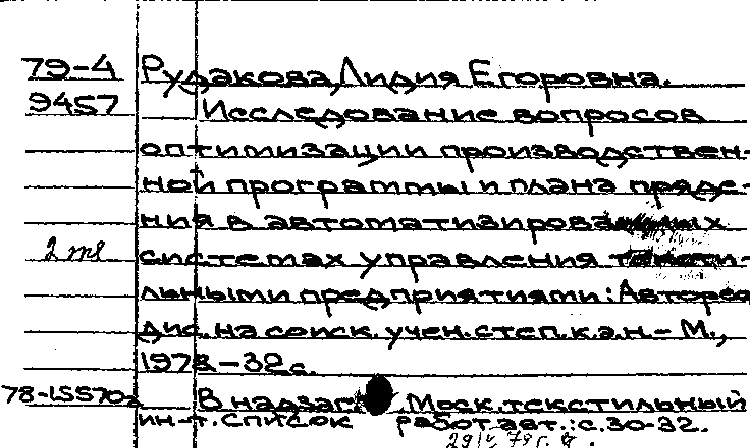 79-4 Рудакова Лидия Егоровна.
9457 Исследование вопросов
оптимизации производствен-
ной программы и плана пряде-
ния в автоматизированных
системах управления тексти-
льными предприятиями: Автореф
дис. на соиск. учен. степ. к.э.н. – М.,
1978 – 32 с.
78-15570а В надзаг. Моск. текстильный
ин-т. список работ авт.: с. 30-32.